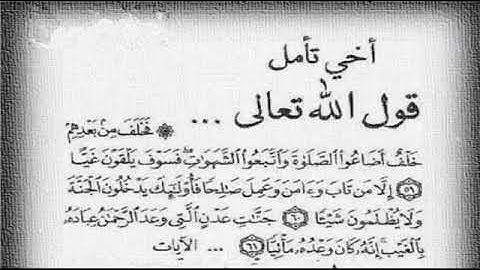 أخي تأمل
قول الله تعالى ...
۞ فَخَلَفَ مِنۢ بَعْدِهِمْ
خَلْفٌ أَضَاعُوا۟ ٱلصَّلَوٰةَ وَٱتَّبَعُوا۟ ٱلشَّهَوَٰتِۖ فَسَوْفَ يَلْقَوْنَ غَيًّا
﴿٥٩﴾ إِلَّا مَن تَابَ وَءَامَنَ وَعَمِلَ صَـٰلِحًا فَأُو۟لَـٰٓئِكَ يَدْخُلُونَ ٱلْجَنَّةَ
وَلَا يُظْلَمُونَ شَيْـًٔا ﴿٦٠﴾ جَنَّـٰتِ عَدْنٍ ٱلَّتِى وَعَدَ ٱلرَّحْمَـٰنُ عِبَادَهُۥ
بِٱلْغَيْبِۚ إِنَّهُۥ كَانَ وَعْدُهُۥ مَأْتِيًّا ﴿٦١﴾ ... الآيات